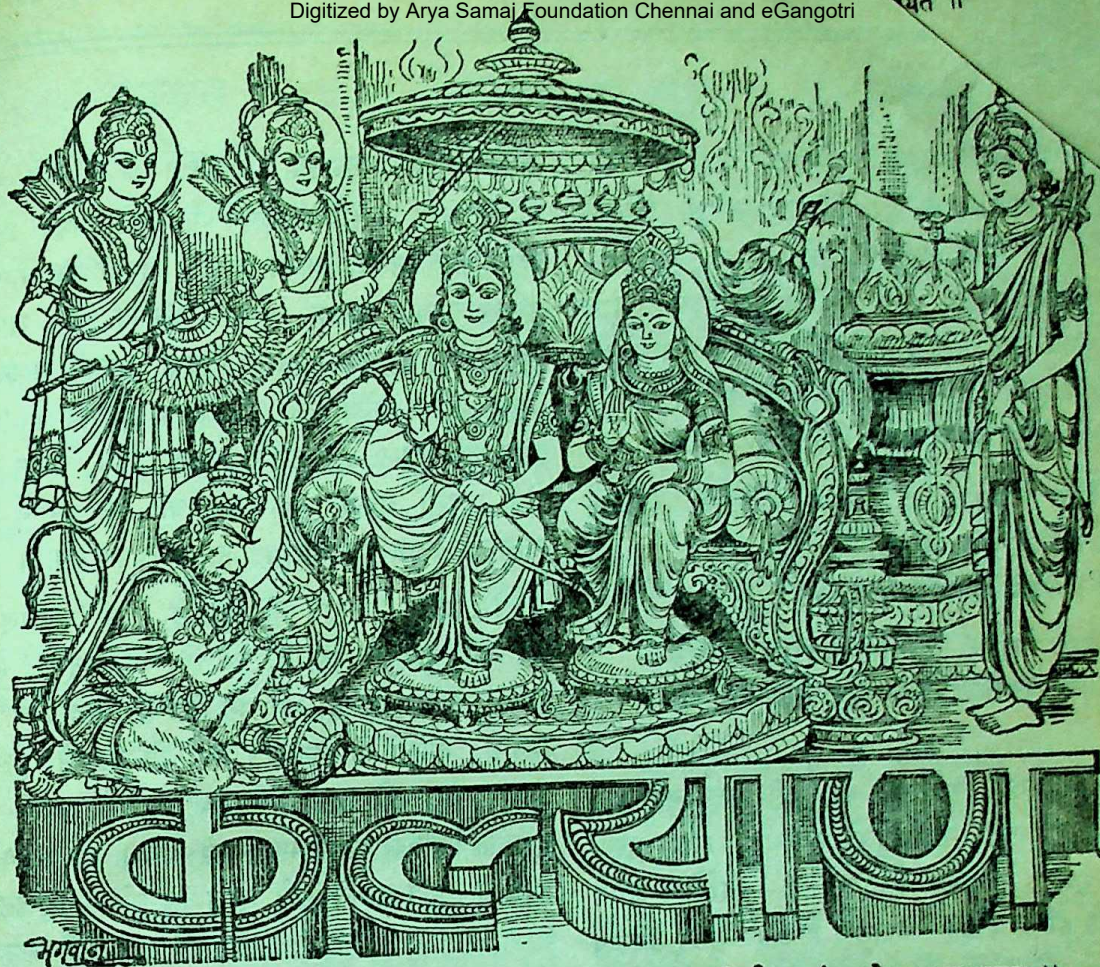 Digitized by Arya Samaj Foundation Chennai and eGangotri
कल्याण
भगवान